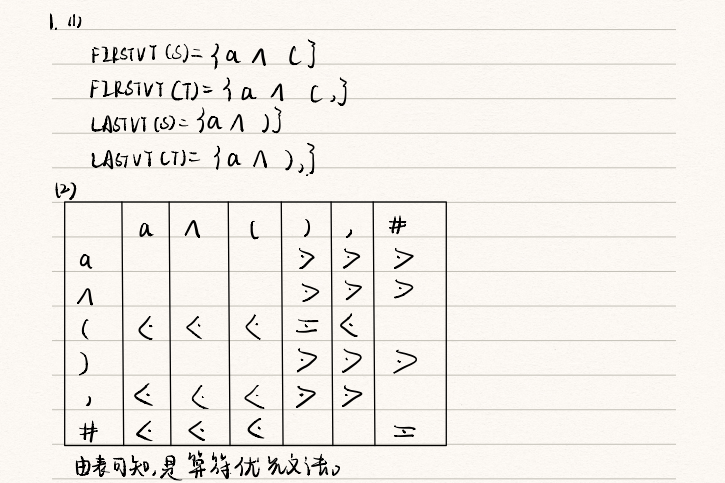 1. (1)
FIRSTVT(S)={a ∧ (}
FIRSTVT(T)={a ∧ (,}
LASTVT(S)={a ∧ )}
LASTVT(T)={a ∧ ),}
(2)
a ∧ ( ) , #
a ⋗ ⋗ ⋗
∧ ⋗ ⋗ ⋗
( ⋖ ⋖ ⋖ = ⋖
) ⋗ ⋗ ⋗
, ⋖ ⋖ ⋖ ⋗ ⋗
# ⋖ ⋖ ⋖ =
由表可知,是算符优先文法。